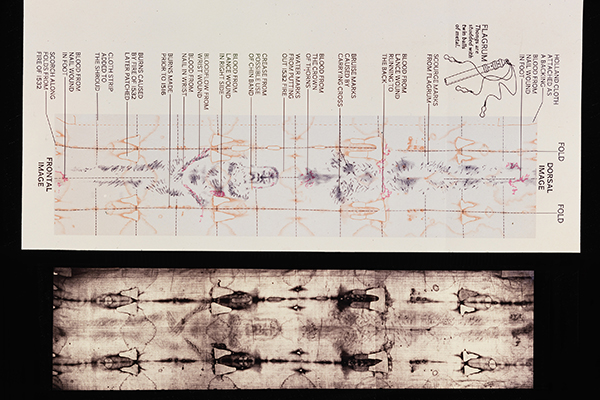 HOLLAND CLOTH
ATTACHED AS
A BACKING
BLOOD FROM
NAIL WOUND
IN FOOT
FLAGRUM
Thongs are
studded with
twin balls
of metal.
SCOURGE MARKS
FROM FLAGRUM
BLOOD FROM
LANCE WOUND
RUNNING TO
THE BACK
BRUISE MARKS
CAUSED BY
CARRYING CROSS
BLOOD FROM
THE CROWN
OF THORNS
WATER MARKS
FROM PUTTING
OUT 1532 FIRE
CREASE FROM
POSSIBLE USE
OF CHIN BAND
BLOOD FROM
LANCE WOUND
IN RIGHT SIDE
BLOODFLOW FROM
WRIST WOUND
BLOOD FROM
NAIL IN WRIST
BURNS MADE
PRIOR TO 1516
BURNS CAUSED
BY FIRE OF 1532
LATER PATCHED
CLOTH STRIP
ADDED TO
THE SHROUD
BLOOD FROM
NAIL WOUND
IN FOOT
SCORCH ALONG
FOLDS FROM
FIRE OF 1532
FOLD
FOLD
DORSAL
IMAGE
FRONTAL
IMAGE